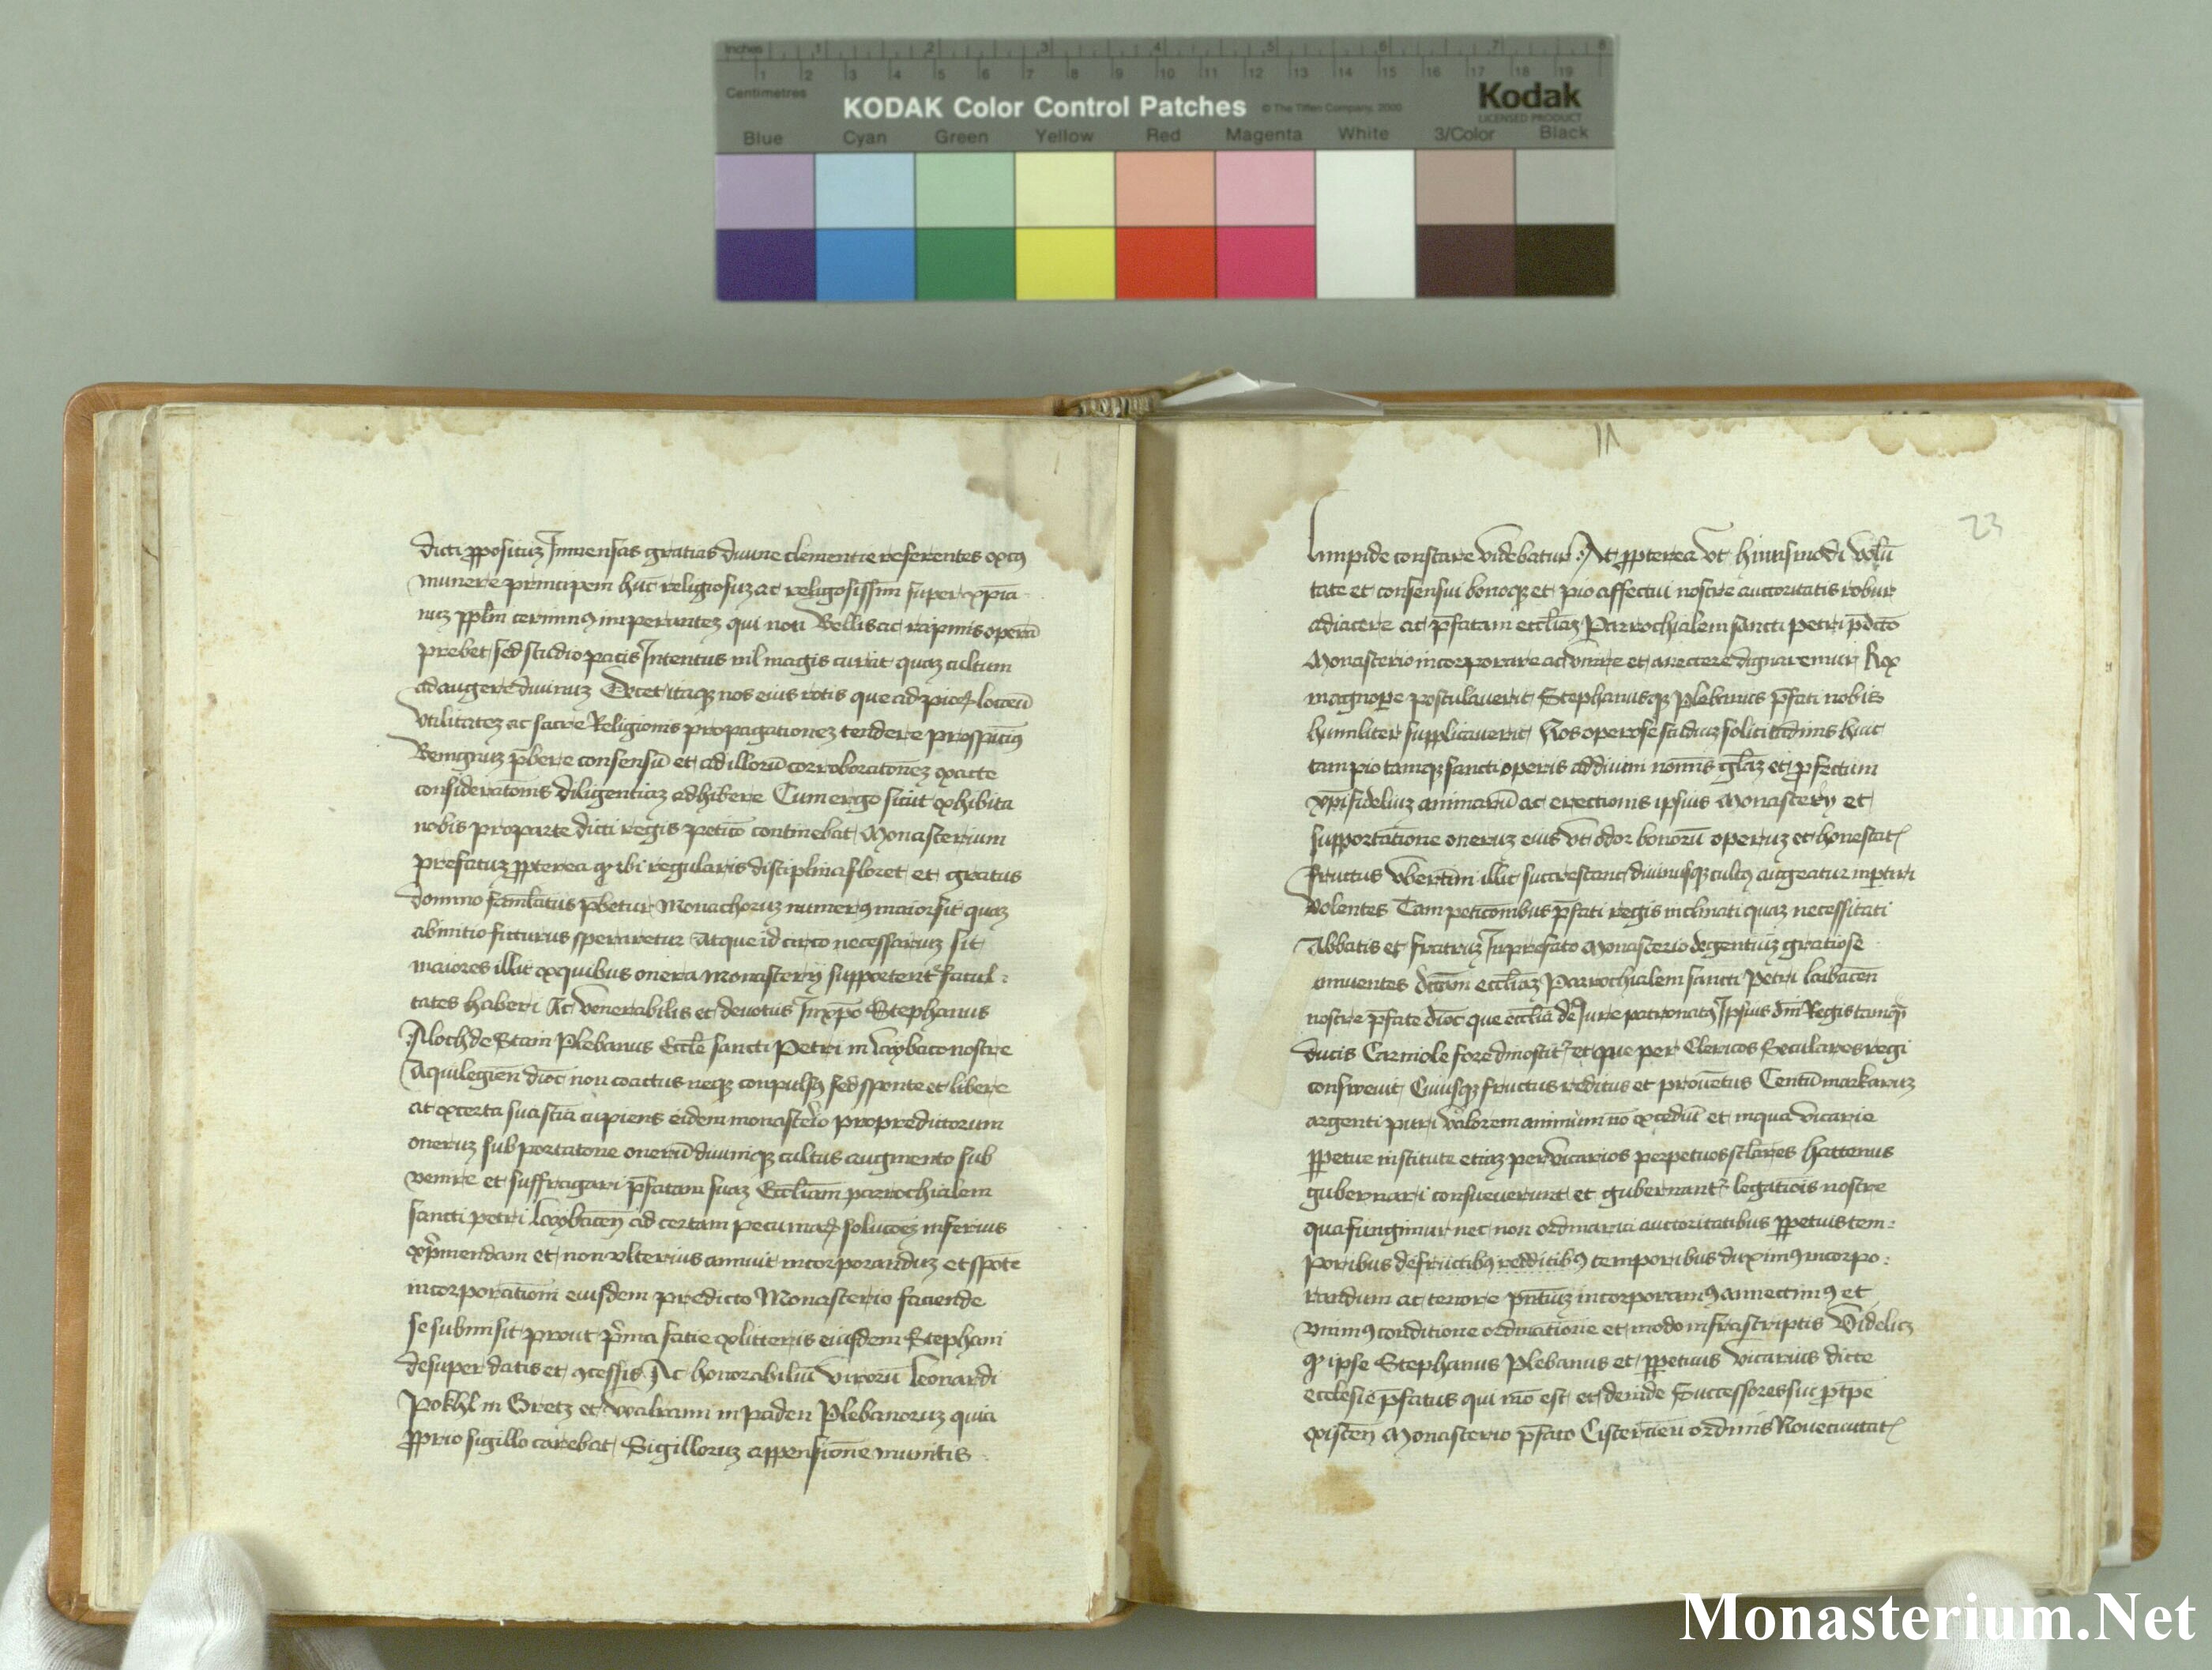 Inches 1 2 3 4 5 6 7 8
1 2 3 4 5 6 7 8 9 10 11 12 13 14 15 16 17 18 19
Centimetres
KODAK Color Control Patches © The Tiffen Company, 2000 Kodak
LICENSED PRODUCT
Blue Cyan Green Yellow Red Magenta White 3/Color Black
dicti ꝓpositꝫ Immensas gratias diuine clementie referentes
munere principem hūc religiosuꝫ ac religiosissim̄ super xp̄ia
nuꝫ pp̄lm cernimꝰ imperantez qui non Bellis ac rapinis operā
prebet sed studio pacis Intentus nil magis curat quaꝫ cultum
adaugere diuinuꝫ Decet itaqꝫ nos eius votis que ad locoꝝ
Vtilitateꝫ ac sacre Religionis propagationeꝫ tendere
Benignuꝫ p̄bere consensū et ad illorū corroboratōneꝫ exacte
consideratōnis diligentiaꝫ adhibere Cum ergo sicut exhibita
nobis pro parte dicti regis peticō continebat Monasterium
prefatuꝫ ꝓpterea ꝙ ibi regularis disciplina floret et gratus
domino famlatus p̄betur Monachoruꝫ numerꝰ maior sit quaꝫ
ab initio futurus speraretur Atque id circo necessariuꝫ sit
maiores illic ex quibus onera Monasterij supportent᷑ facul:
tates haberi Ac Venerabilis et deuotus In xp̄o Stephanus
Aloch de Stain Plebanus Eccl̄e sancti Petri in Laybaco nostre
Aquilegien̄ dioc̄ non coactus neqꝫ conpulsꝰ sed sponte et libere
ac ex certa sua scīa cupiens eidem monastērio pro predictorum
oneruꝫ subportatone onerū diuiniqꝫ cultus augmento sub
venire et suffragari p̄fatam suaꝫ Ecclīam parrochialem
sancti petri Laybacen̄ ad certam pecuniaꝝ solucōeꝫ inferius
exp̄mendam et non vlterius annuit incorporanduꝫ et spōte
incorporātioni eiusdem predicto Monasterio faciende
se submisit prout p̄ma facie ex litteris eiusdem Stephani
desuper datis et ꝯcessis Ac honorabiliū virorū Leonardi
Pokhl in Gretz et Walranni in paden Plebanoruꝫ quia
ꝓprio sigillo carebat Sigilloruꝫ appensiōne munitis
23
Limpide constare videbatur Et ꝓpterea vt huiusmodi volū
tate et consensui bonoqꝫ et pio affectui nostre auctoritatis robur
adiacere ac p̄fatam ecclīaꝫ Parrochialem sancti petri p̄dc̄o
Monasterio incorporare ac vnire et annectere dignaremur Rex
magnoꝑe postulauerit Stephanusqꝫ Plebanus p̄fati nobis
humiliter supplicauerit Nos operose studiuꝫ solicitudinis huic
tam pio tamqꝫ sancti operis ad diuini nōmis gl̄aꝫ et ꝓfectum
xp̄ifideliuꝫ animarū ac erectionis ipsius Monasterij et
supportatione oneruꝫ eius vt odor bonorū operuꝫ et honestatꝭ
fructus vbertim illic succrescant diuinusqꝫ cultꝰ augeatur inꝑtiri
volentes Tam petitionibus p̄fati regis inclinati quaꝫ necessitati
Abbatis et fratruꝫ In prefato Monasterio degentiuꝫ gratiose
annuentes dictam ecclīaꝫ Parrochialem sancti Petri laibacen̄
nostre p̄fate dioc̄ que ecclīa de Iure patronatꝰ Ipsius dn̄i Regis tamqꝫ
ducis Carniole fore dinoscit᷑ et que per Clericos Seculares regi
consweuit Cuiusqꝫ fructus reditus et prouentus Centū markaruꝫ
argenti puri valorem annuum nō excedūt et in qua vicarie
ꝑpetue institute etiaꝫ per vicarios perpetuos sclares hactenus
gubernari consueuerunt et gubernant᷑ legatiōis nostre
qua fungimur nec non ordinaria auctoritatibus ꝑpetuis tem:
poribus de fructibꝰ redditibꝰ temporibus duximꝰ incorpo:
randum ac tenore p̄ntiuꝫ incorporamꝰ annectimꝰ et
vnimꝰ conditione ordinatione et modo infrascriptis Videlicꝫ
ꝙ ipse Stephanus Plebanus et ꝑpetuus vicarius dicte
ecclesie p̄fatus qui nūc est et deinde Successores sui
existen̄ Monasterio p̄fato Cistercien̄ ordinis Noueciuitatꝭ
Monasterium.Net